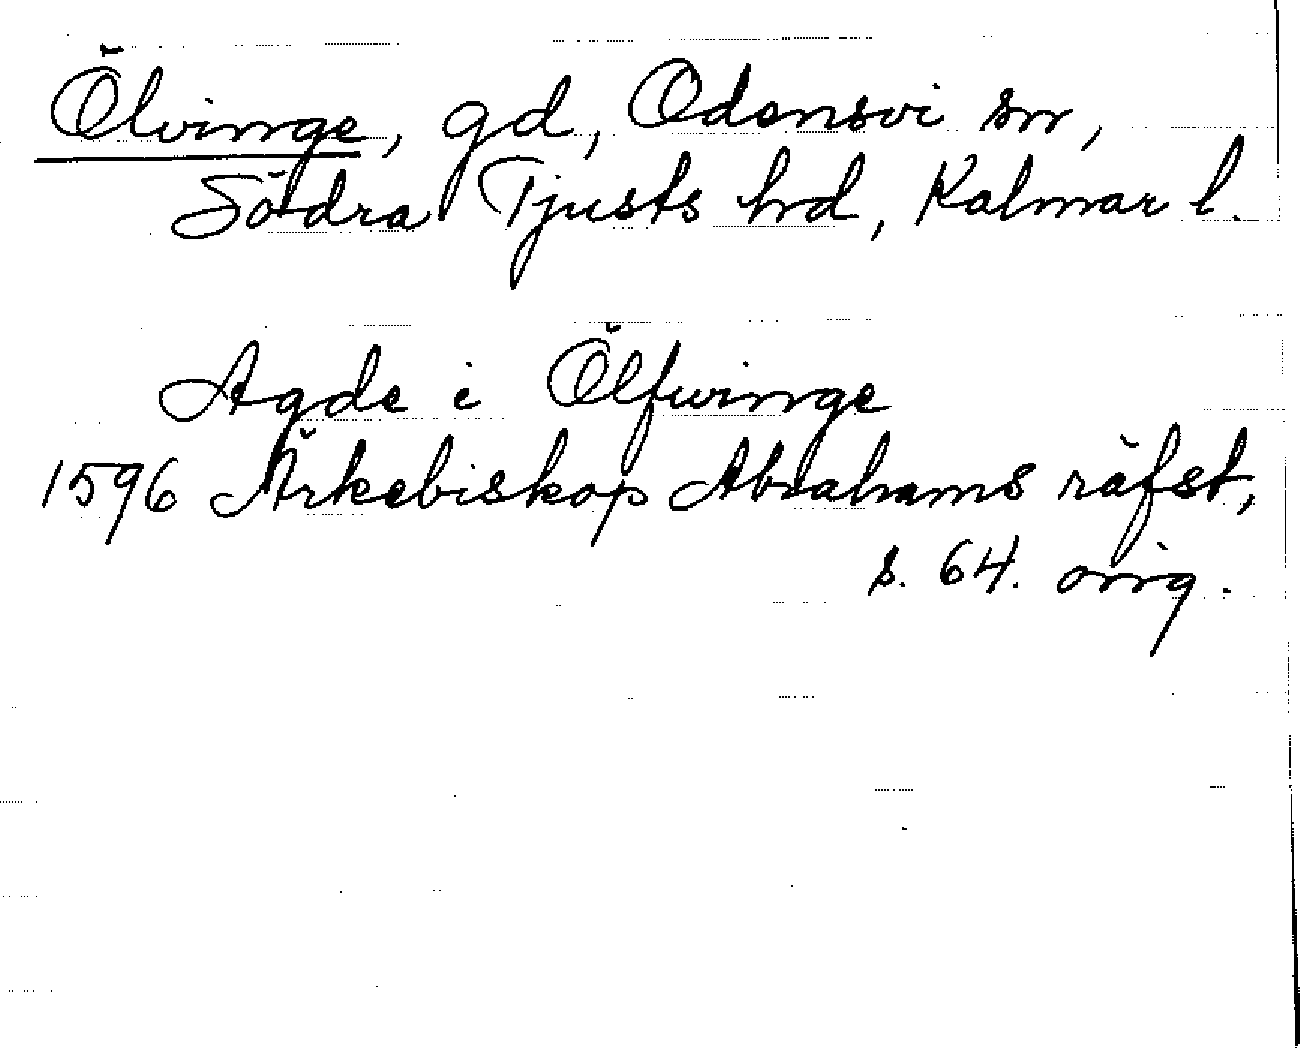 Ölvinge, gd, Odensvi sn,
Södra Tjusts hrd, Kalmar l.
Agde i Ölfwinge
1596 Ärkebiskop Abrahams räfst,
s. 64. orig.